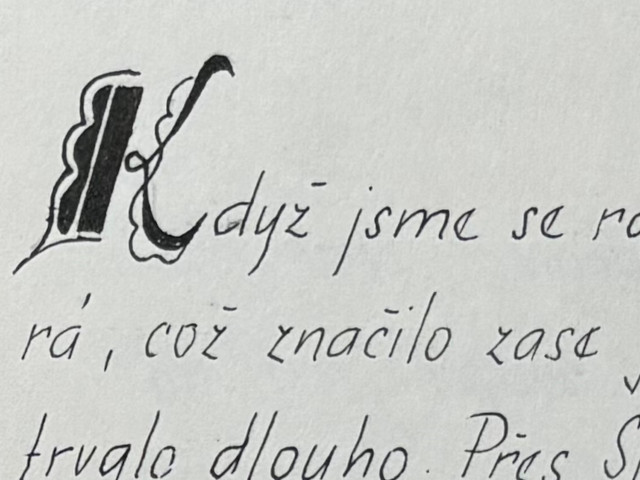 Když jsme se
rá, což značilo zase
trvalo dlouho. Přes